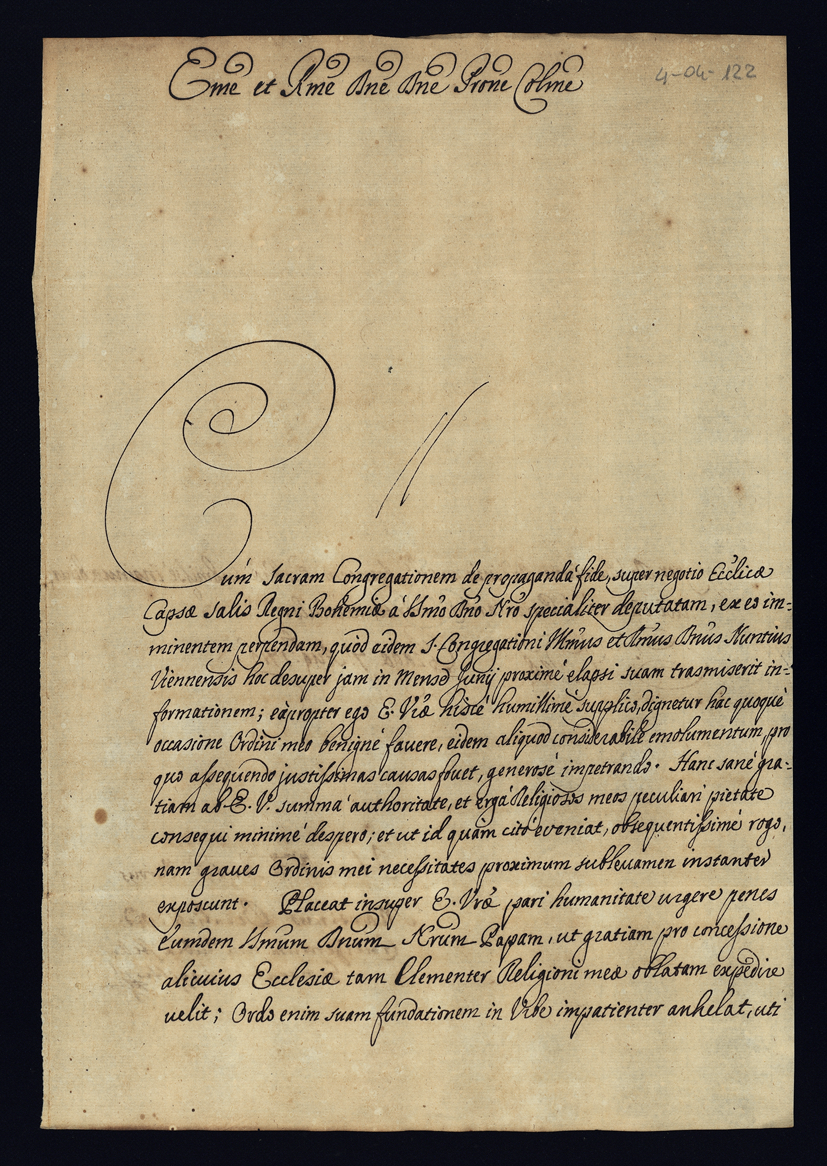 Eme et Rme Dne Dne Prone Colme
4-04-122
Cum Sacram Congregationem de propagandâ fide, super negotio Ecclicæ
Capsæ Salis Regni Bohemiæ â Ssmo Dno Nro specialiter deputatam, ex eo im=
minentem perpendam, quod eidem S. Congregationi Illmus et Rmus Dnus Nuntius
Viennensis hoc desuper jam in Mense Junij proximé elapsi suam trasmiserit in=
formationem; eàpropter ego E. Vræ hiscé humillimé supplico, dignetur hac quoquè
occasione Ordini meo benigné favere, eidem aliquod considerabile emolumentum, pro
quo assequendo justissimas causas fovet, generosé impetrando. Hanc sané gra=
tiam ab E. V. summâ authoritate, et ergâ Religiosos meos peculiari pietate
consequi minimé despero; et ut id quàm citó eveniat, obsequentissimé rogo,
nam graves Ordinis mei necessitates proximum sublevamen instanter
exposcunt. Placeat insuper E. Vræ pari humanitate urgere penes
Eumdem Ssmum Dnum Nrum Papam, ut gratiam pro concessione
alicuius Ecclesiæ tam Clementer Religioni meæ oblatam expedire
velit; Ordo enim suam fundationem in Urbe impatienter anhelat, uti